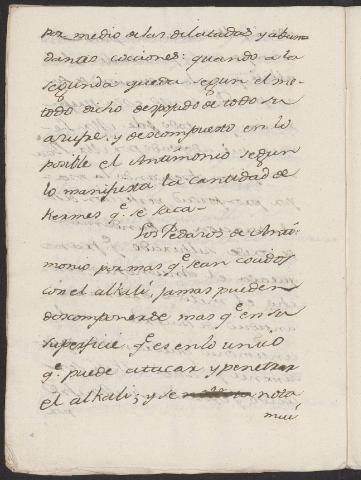 por medio de las dilatadas y abun
dantes cocciones: quando a la
segunda queda segun el me-
todo dicho despojado de todo su
azufre, y descompuesto en lo
posible el Antimonio segun
lo manifiesta la cantidad de
Kermes q.e se saca-
Los Pedazos de Anti-
monio por mas q.e sean cocidos
con el alkali, jamas pueden
descomponerse mas q.e en su
superficie, q.e es en lo unico
q.e puede atacar y penetrar
el alkali; y se nota
mui